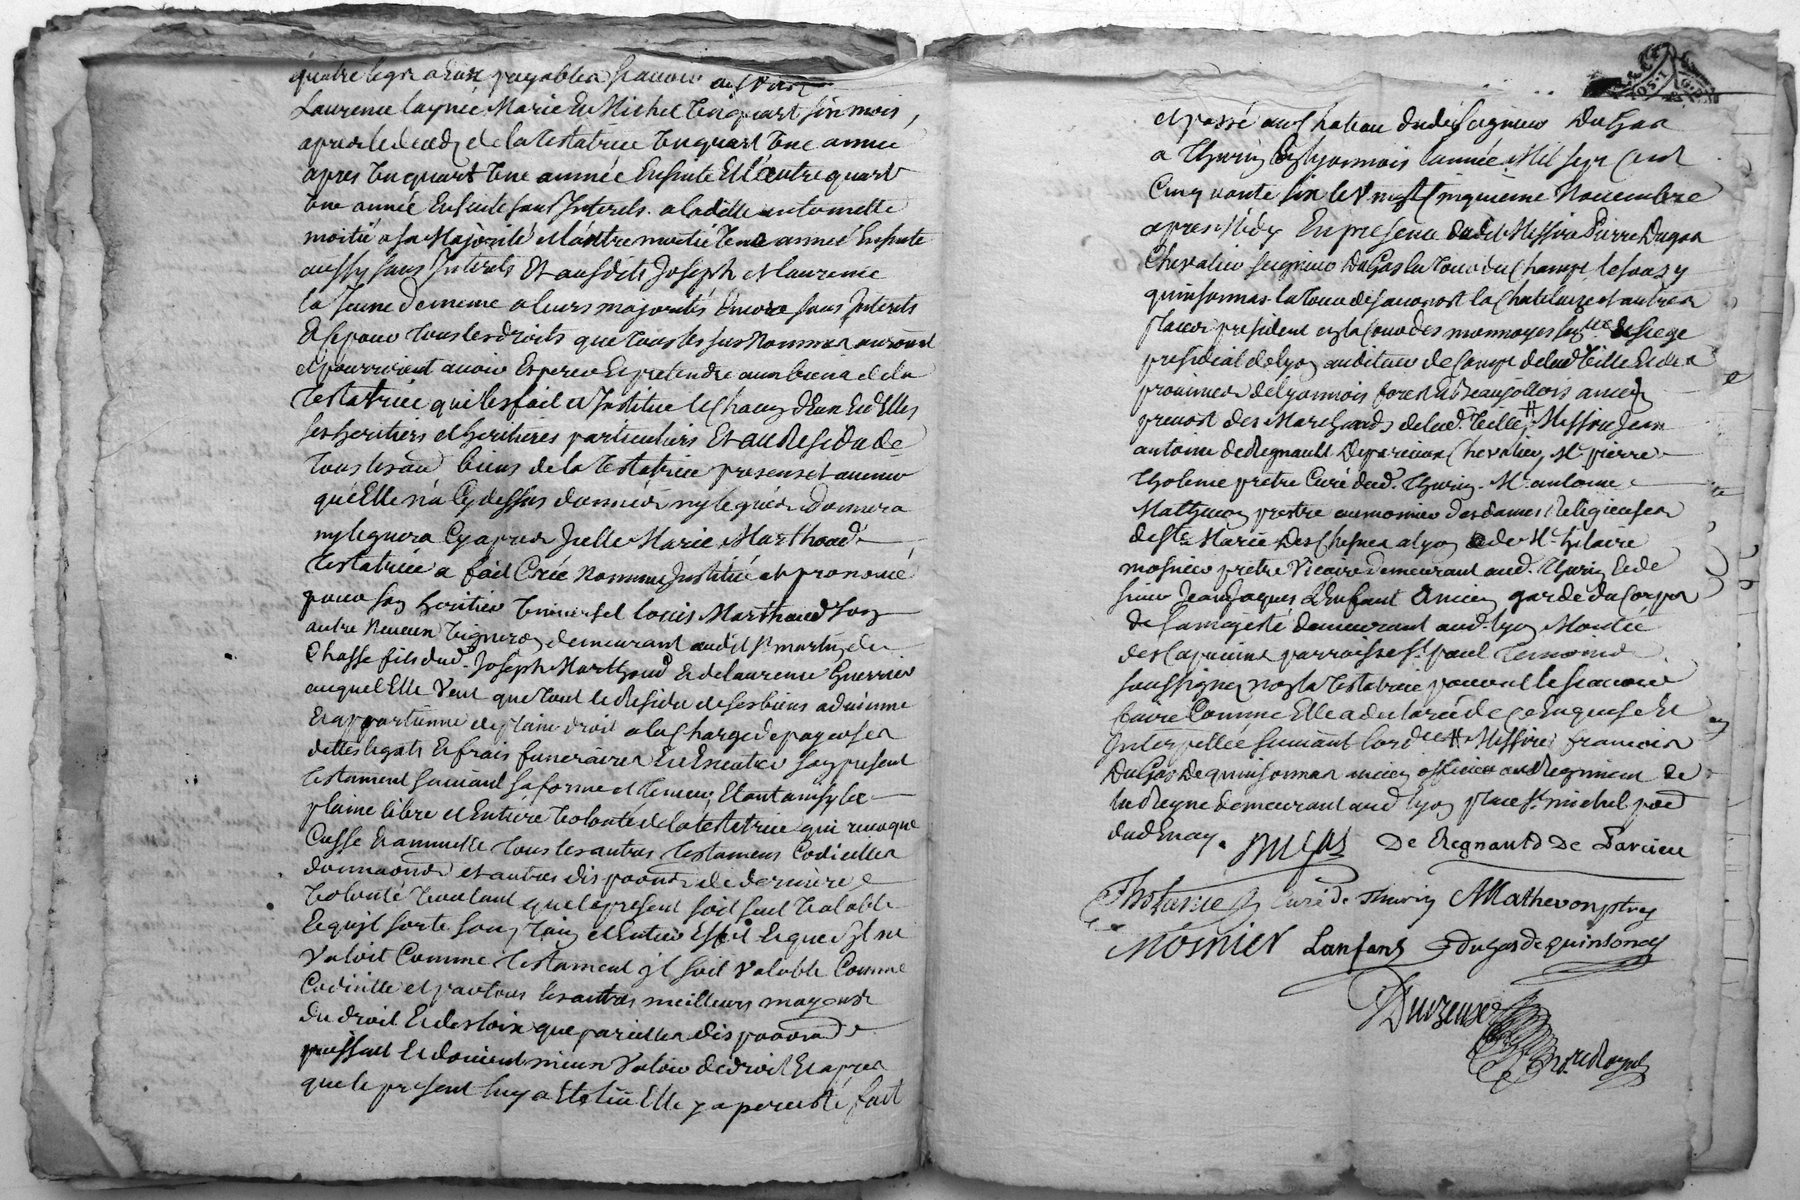 quatre legs a eux payables scavoir ausdits
Laurence laynée Marie Et Michel un quart six mois,
apres le deced de la testatrice un quart une année
apres un quart une année Ensuite Et l'autre quart
une année Ensuite sans Interets. a ladite antoinette
moitié a sa Majorité et l'autre moitié une année Ensuite
aussy sans Interets Et ausdits Joseph et laurence
la Jeune de meme a leurs majorités Encore sans Interets
Et pour tous les droits que tous les sus nommes auroient
et pourroient avoir Esperer Et pretendre aux biens de la
testatrice qui les fait et Institue le chacun d'Eux Et d'Elles
ses heritiers et heritieres particuliers Et au Residu de
tous les biens de la testatrice presens et avenir
qu'Elle n'a Cy dessus donnés ny legués donnera
ny leguera Cy apres Jcelle Marie Marthoud
testatrice a fait Créé nommé Institué et prononcé
pour son heritier universel Louis Marthoud son
autre neveu vigneron demeurant audit St martin de
Chasse fils dud. Joseph Marthoud Et de laurence Guerrier
auquel Elle veut que tout le Residu de ses biens advienne
Et appartienne de plain droit a la charge de payer ses
dettes legats Et frais funeraires Et Executer son present
testament suivant sa forme et teneur, Etant ainsy la
plaine libre et Entiere volonté de la testatrice qui revoque
Casse Et annulle tous les autres testaments Codicilles
donnaons et autres dispoons de derniere
volonté voulant que le present soit seul valable
Et qu'il sorte son plain et Entier Effet Et que s'il ne
valoit Comme testament il soit valable Comme
Codicille et par tous les autres meilleurs moyens
du droit Et des loix que pareilles dispoons
puissent Et doivent mieux valoir de droit Et apres
que le present luy a Eté lû Elle y a persisté fait
et passé au Chateau dudit Seigneur DuGas
a Thurin En lyonnois l'année Mil sept Cent
Cinquante six le vingt Cinquieme Novembre
apres Midy En presence dudit Messire Pierre Dugas
Chevalier seigneur DuGas la tour du Champt le souzy
quinsonnas la tour de savonost la Chatelaize et autres
places president en la Cour des monnoyes senéchaussée Et siege
presidial de lyon auditeur de Camp de lad ville Et des
provinces de lyonnois forest Et Beaujollois ancien
prevost des Marchands de lad. ville # Messire Jean
antoine de Regnauld De parcieu Chevalier Mr pierre
Tholance pretre Curé dud. Thurin. Mr antoine
Mathevon prestre aumonier des dames Religieuses
de Ste Marie des Chesnes a lyon & de Mr hilaire
mosnier pretre Vicaire demeurant aud. Thurin Et de
sieur Jean Jaques L'Enfant Ancien garde du Corps
de sa majesté demeurant aud. lyon Montée
des Capucins parroisse St paul temoins
soussignez non la testatrice pour ne le scavoir
faire Comme Elle a declaré de ce Enquise Et
Interpellée suivant l'ordce # Messire francois
DuGas De quinsonnas ancien officier au Regiment de
la Reyne demeurant aud lyon place St michel psse
dud Enay.
DuGas De Regnauld De Parcieu
Tholance Curé de Thurin AMathevon ptre
Mosnier Lanfant Dugas de quinsonas
Durzeux
nre Royal